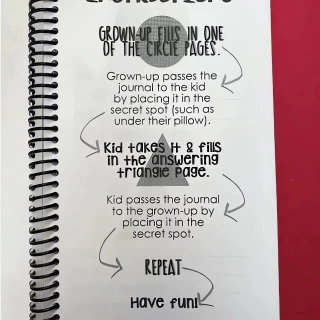 GROWN-UP FILLS IN ONE
OF THE CIRCLE PAGES.
Grown-up passes the
journal to the kid
by placing it in the
secret spot (such as
under their pillow).
Kid takes it & fills
in the answering
triangle page.
Kid passes the journal
to the grown-up by
placing it in the
secret spot.
REPEAT
Have fun!